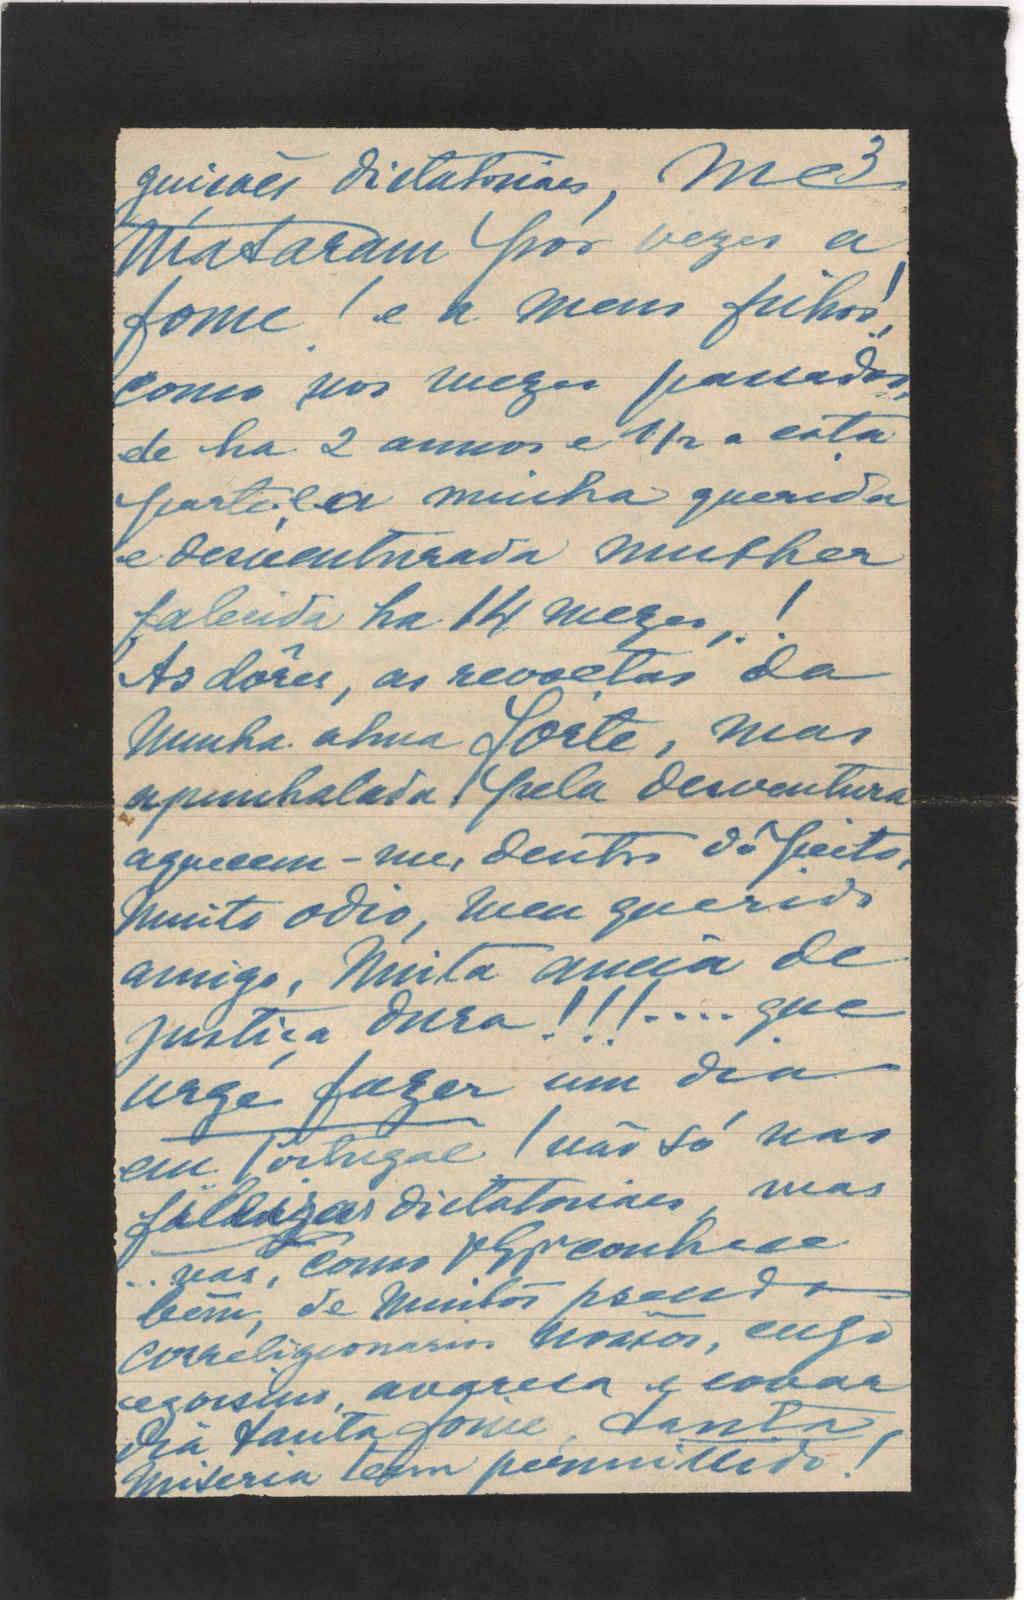 3
guições dictatoriaes, me
mataram por vezes a
fome! e a meus filhos!,
como nos mezes passados,
de ha 2 annos e 1/2 a esta
parte, e a minha querida
e desventurada mulher
falecida ha 14 mezes,..!
As dôres, as revoltas da
minha alma forte, mas
apunhalada! pela desventura
aquecem-me, dentro do peito,
muito odio, meu querido
amigo, muita ancia de
justiça dura!!!.... que
urge fazer um dia
em Portugal! não só nas
dictatoriaes, mas
.. nas, como conhece
bem, de muitos pseudo
correligionarios nossos, cujo
egoismo, avareza e covar
dia tanta fome, tanta
miseria tem permittido!